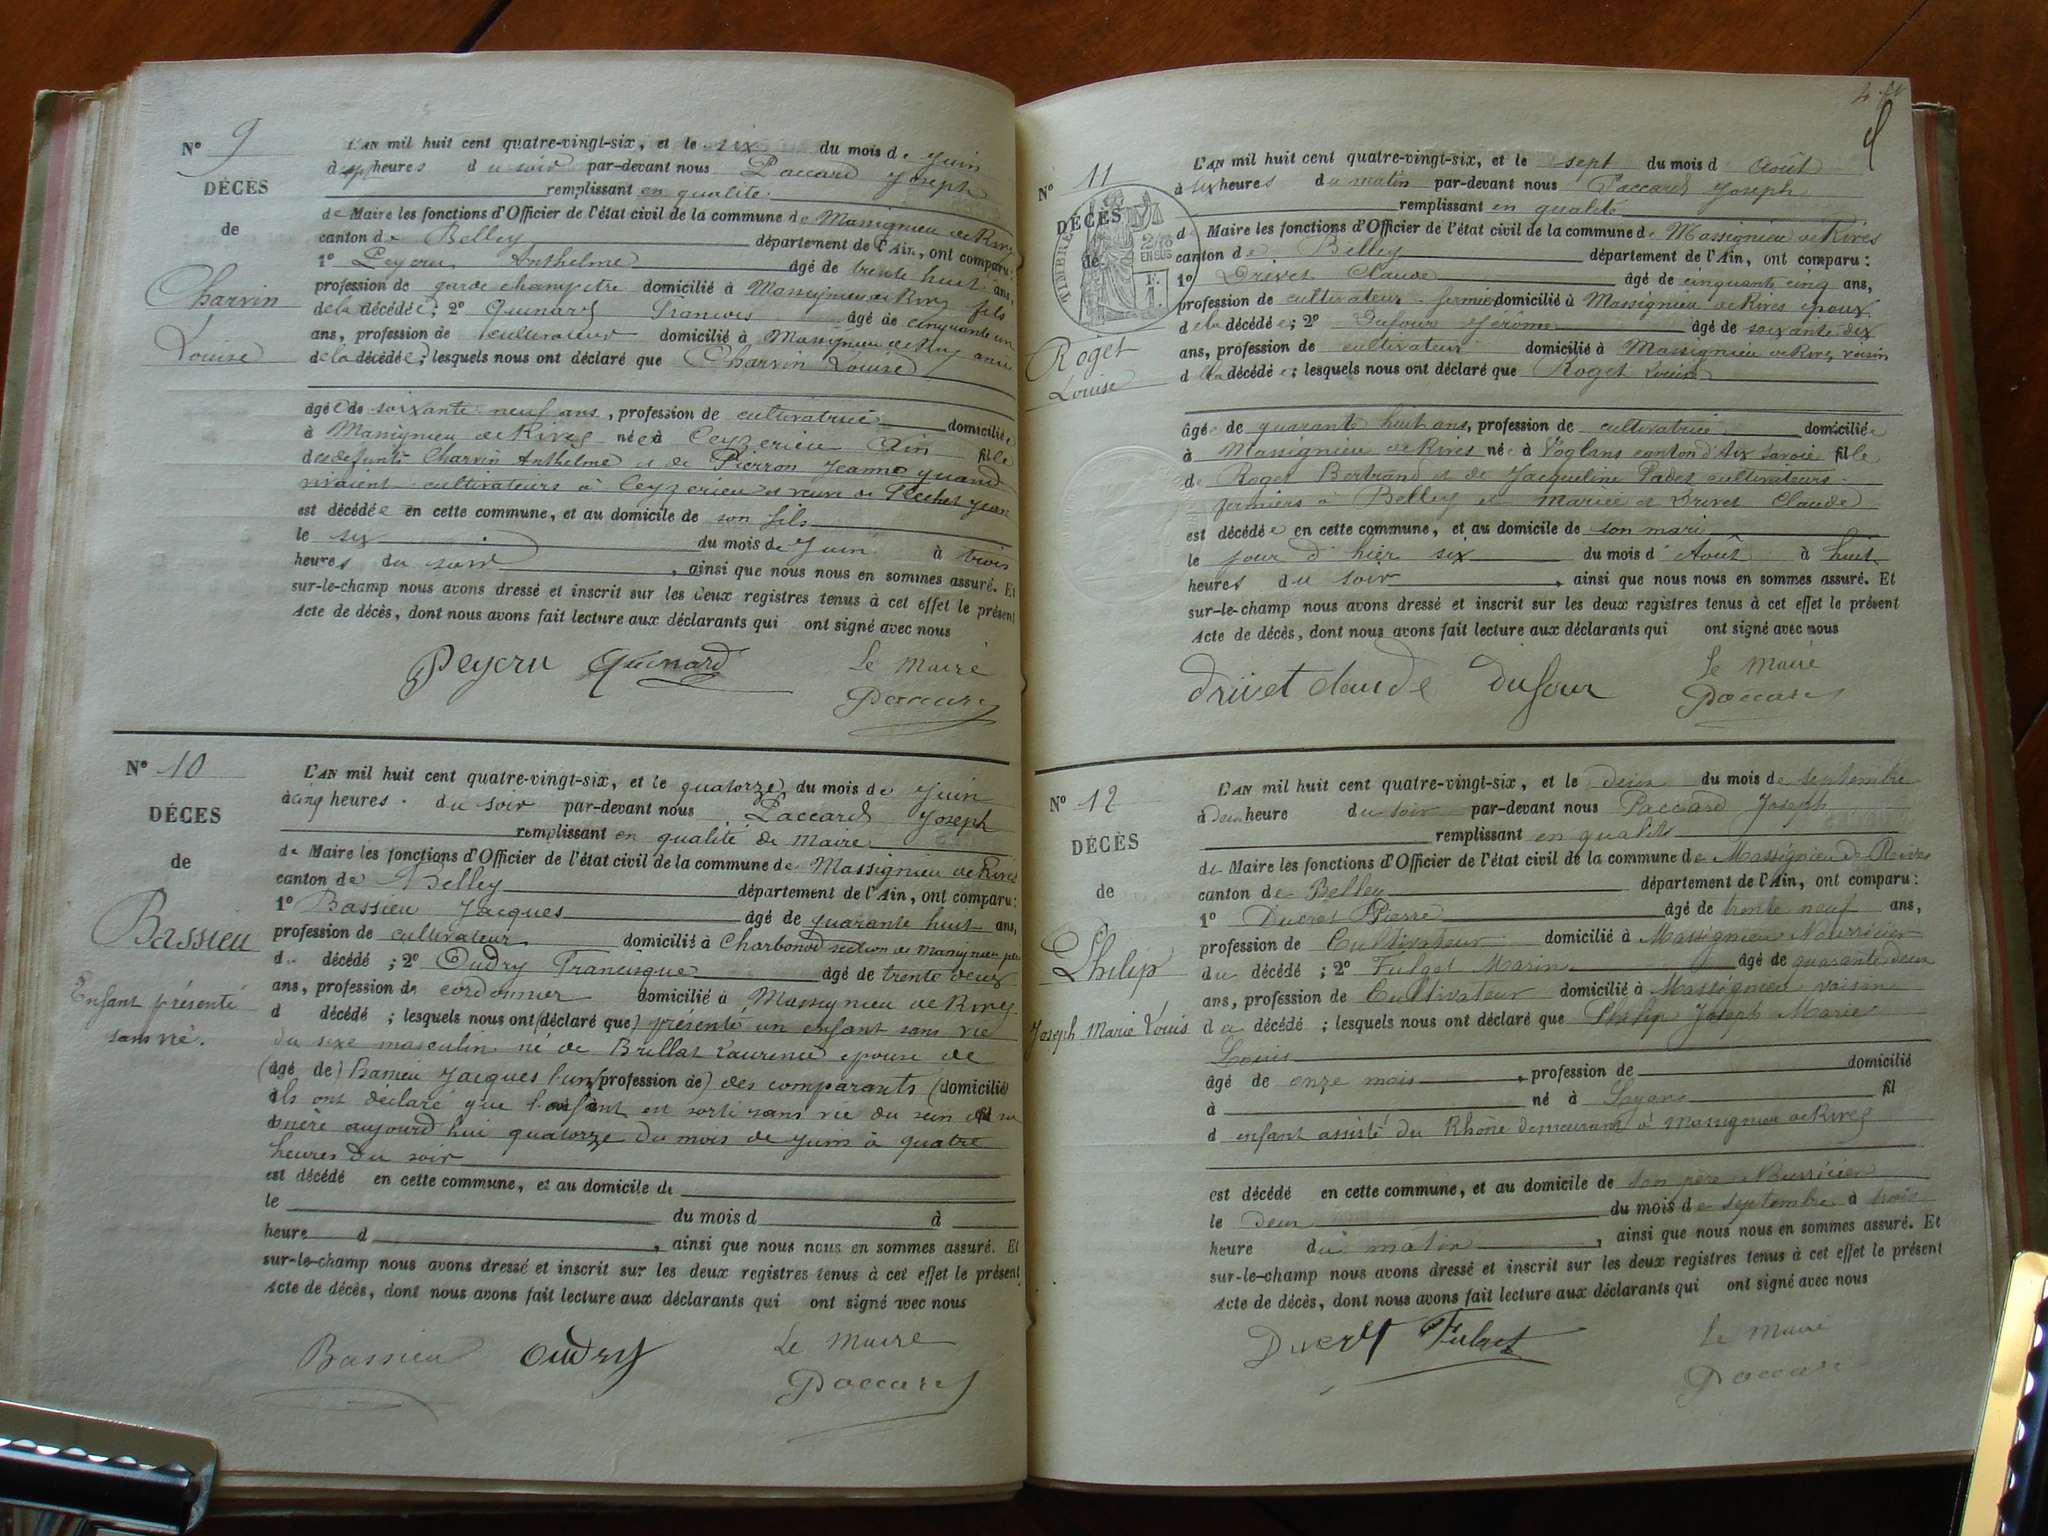 N° 9
DÉCÈS
de
Charvin
Louise
L'AN mil huit cent quatre-vingt-six, et le six du mois de Juin
à sept heures du soir par-devant nous Paccard Joseph
remplissant en qualité
de Maire les fonctions d'Officier de l'état civil de la commune de Massignieu de Rives
canton de Belley département de l'Ain, ont comparu:
1° Peycru Anthelme âgé de trente huit ans,
profession de garde champetre domicilié à Massignieu de Rives fils
de la décédée; 2° Quinard Francois âgé de cinquante un
ans, profession de cultivateur domicilié à Massignieu de Rives amie
de la décédée; lesquels nous ont déclaré que Charvin Louise
âgée de soixante neuf ans, profession de cultivatrice domiciliée
à Massignieu de Rives née à Ceyzerieu Ain fille
des defunts Charvin Anthelme et de Pierron Jeanne quand
vivaient cultivateurs à Ceyzerieu et veuve de Jean
est décédée en cette commune, et au domicile de son fils
le six du mois de Juin à trois
heures du soir, ainsi que nous nous en sommes assuré. Et
sur-le-champ nous avons dressé et inscrit sur les deux registres tenus à cet effet le présent
Acte de décès, dont nous avons fait lecture aux déclarants qui ont signé avec nous
Peycru Quinard Le Maire
Paccard
N° 10
DÉCES
de
Bassieu
Enfant présenté
sans vie.
L'AN mil huit cent quatre-vingt-six, et le quatorze du mois de Juin
à cinq heures du soir par-devant nous Paccard Joseph
remplissant en qualité de Maire
de Maire les fonctions d'Officier de l'état civil de la commune de Massignieu de Rives
canton de Belley département de l'Ain, ont comparu:
1° Bassieu Jacques âgé de quarante huit ans,
profession de cultivateur domicilié à Charbonod section de Massignieu père
du décédé; 2° Oudry Francisque âgé de trente deux
ans, profession de cordonnier domicilié à Massignieu de Rives
d décédé; lesquels nous ont (déclaré que) présenté un enfant sans vie
du sexe masculin né de Brillat Laurence epouse de
(âgé de) Bassieu Jacques l'un (profession de) des comparants (domicilié)
ils ont déclaré que l'enfant est sorti sans vie du sein de sa
mère aujourd'hui quatorze du mois de Juin à quatre
heures du soir
est décédé en cette commune, et au domicile de
le du mois d à
heure d, ainsi que nous nous en sommes assuré. Et
sur-le-champ nous avons dressé et inscrit sur les deux registres tenus à cet effet le présent
Acte de décès, dont nous avons fait lecture aux déclarants qui ont signé avec nous
Bassieu Oudry Le Maire
Paccard
N° 11
DÉCÈS
de
TIMBRE
2/10
EN SUS
Roget
Louise
L'AN mil huit cent quatre-vingt-six, et le sept du mois d Août
à six heures du matin par-devant nous Paccard Joseph
remplissant en qualité
de Maire les fonctions d'Officier de l'état civil de la commune de Massignieu de Rives
canton de Belley département de l'Ain, ont comparu:
1° Drivet Claude âgé de cinquante cinq ans,
profession de cultivateur fermier domicilié à Massignieu de Rives epoux
de la décédée; 2° Dufour Jérôme âgé de soixante dix
ans, profession de cultivateur domicilié à Massignieu de Rives voisin
de la décédée; lesquels nous ont déclaré que Roget Louise
âgée de quarante huit ans, profession de cultivatrice domiciliée
à Massignieu de Rives née à Voglans canton d'Aix Savoie fille
de Roget Bertrand et de Jacqueline Padet cultivateurs
fermiers à Belley et mariée à Drivet Claude
est décédée en cette commune, et au domicile de son mari
le jour d'hier six du mois d'Août à huit
heures du soir, ainsi que nous nous en sommes assuré. Et
sur-le-champ nous avons dressé et inscrit sur les deux registres tenus à cet effet le présent
Acte de décès, dont nous avons fait lecture aux déclarants qui ont signé avec nous
Drivet claude Dufour Le Maire
Paccard
N° 12
DÉCÈS
de
Philip
Joseph Marie Louis
L'AN mil huit cent quatre-vingt-six, et le deux du mois de septembre
à deux heure du soir par-devant nous Paccard Joseph
remplissant en qualité
de Maire les fonctions d'Officier de l'état civil de la commune de Massignieu de Rives
canton de Belley département de l'Ain, ont comparu:
1° Ducret Pierre âgé de trente neuf ans,
profession de Cultivateur domicilié à Massignieu Nourricier
du décédé; 2° Fulget Marin âgé de quarante deux
ans, profession de Cultivateur domicilié à Massignieu voisin
du décédé; lesquels nous ont déclaré que Philip Joseph Marie
Louis
âgé de onze mois, profession de domicilié
à né à Lyon fil
d enfant assisté du Rhône demeurant à Massignieu de Rives
est décédé en cette commune, et au domicile de son père Nourricier
le deux du mois de septembre à trois
heure du matin, ainsi que nous nous en sommes assuré. Et
sur-le-champ nous avons dressé et inscrit sur les deux registres tenus à cet effet le présent
Acte de décès, dont nous avons fait lecture aux déclarants qui ont signé avec nous
Ducret Fulget Le Maire
Paccard